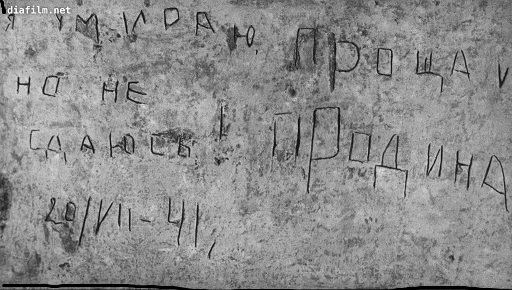 diafilm.net
Я УМИРАЮ,
НО НЕ
СДАЮСЬ!
ПРОЩАЙ
РОДИНА
20/VII-41,